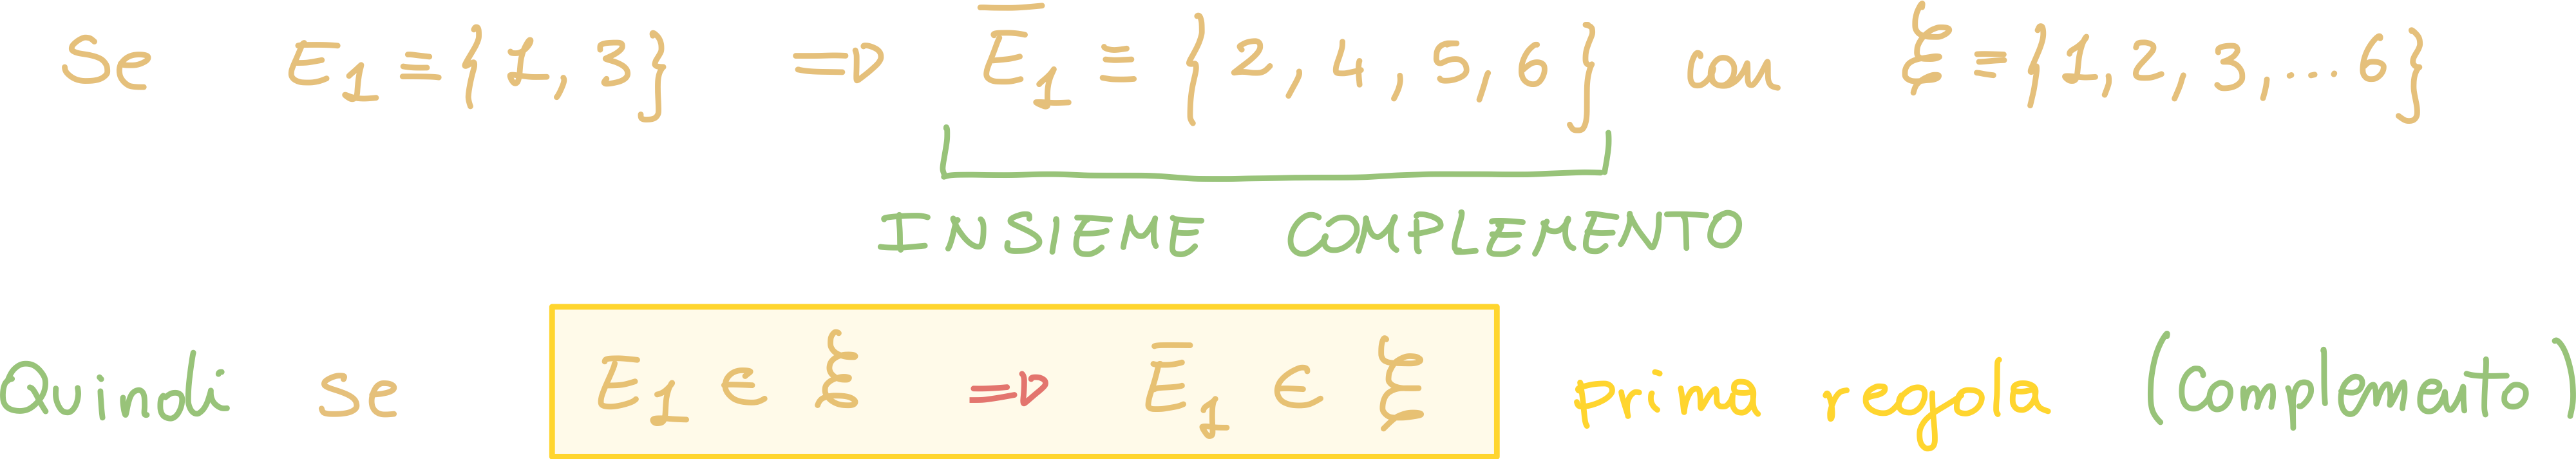 Se E₁ ≡ {1, 3} ⇒ E̅₁ ≡ {2, 4, 5, 6} con ξ = {1, 2, 3, ... 6}
INSIEME COMPLEMENTO
Quindi se E₁ ∈ ξ ⇒ E̅₁ ∈ ξ prima regola (Complemento)